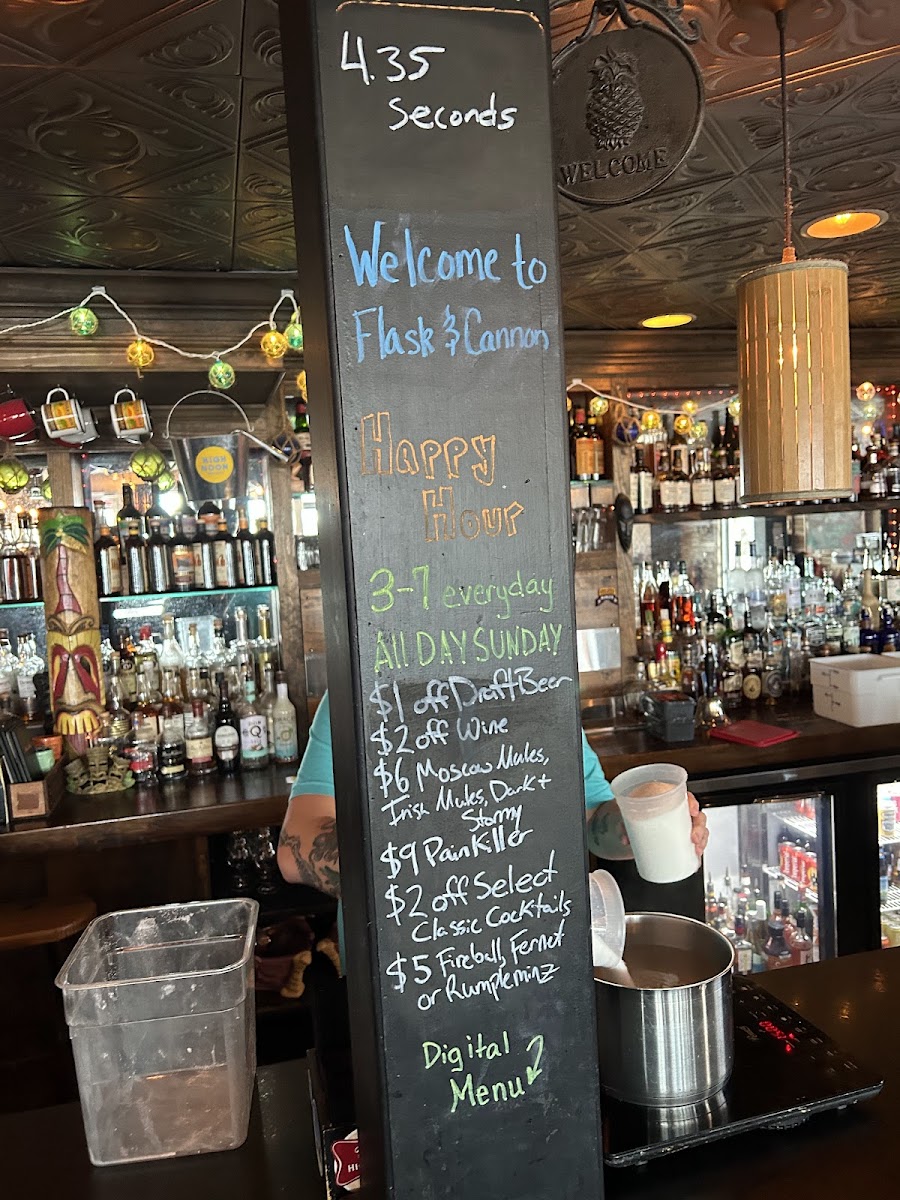 4.35
Seconds
WELCOME
Welcome to
Flask & Cannon
Happy
Hour
HIGH
NOON
3-7 everyday
All DAY SUNDAY
$1 off Draft Beer
$2 off Wine
$6 Moscow Mules,
Irish Mules, Dark +
Stormy
$9 Painkiller
$2 off Select
Classic Cocktails
$5 Fireball, Fernet
or Rumpleminz
Digital
Menu